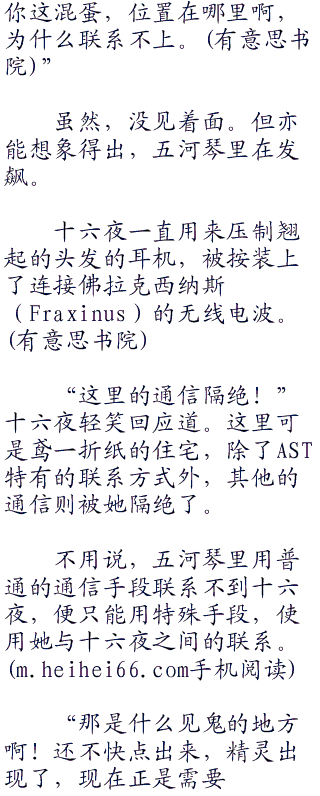 你这混蛋，位置在哪里啊，
为什么联系不上。(有意思书
院)”
虽然，没见着面。但亦
能想象得出，五河琴里在发
飙。
十六夜一直用来压制翘
起的头发的耳机，被按装上
了连接佛拉克西纳斯
（Fraxinus）的无线电波。
(有意思书院)
“这里的通信隔绝！”
十六夜轻笑回应道。这里可
是鸢一折纸的住宅，除了AST
特有的联系方式外，其他的
通信则被她隔绝了。
不用说，五河琴里用普
通的通信手段联系不到十六
夜，便只能用特殊手段，使
用她与十六夜之间的联系。
(m.heihei66.com手机阅读)
“那是什么见鬼的地方
啊！还不快点出来，精灵出
现了，现在正是需要